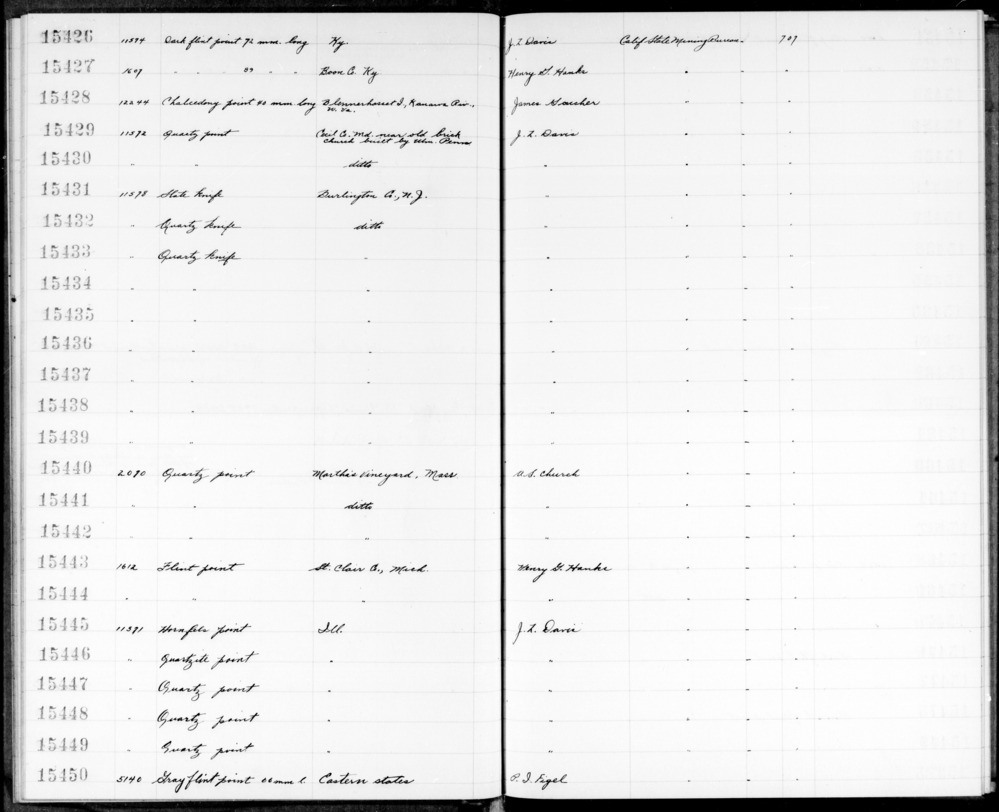 15426 11594 Dark flint point 72 mm. long Ky. J. Z. Davis Calif. State Mining Bureau - 707
15427 1607 " " 59 " " Boon Co. Ky Henry G. Hanks " " "
15428 12244 Chalcedony point 40 mm. long Blennerhosset I, Kanawa Riv., W. Va. James " " "
15429 11592 Quartz point Cecil Co. Md. near old brick church built by Wm. Penn J. Z. Davis " " "
15430 " " ditto " " " "
15431 11598 Slate knife Burlington Co., N.J. " " " "
15432 " Quartz knife ditto " " " "
15433 " Quartz knife " " " " "
15434 " " " " " " "
15435 " " " " " " "
15436 " " " " " " "
15437 " " " " " " "
15438 " " " " " " "
15439 " " " " " " "
15440 2090 Quartz point Martha's Vineyard, Mass. A. S. Church " " "
15441 " " ditto " " " "
15442 " " " " " " "
15443 1612 Flint point St. Clair Co., Mich. Henry G. Hanks " " "
15444 " " " " " " "
15445 11591 Hornfels point Ill. J. Z. Davis " " "
15446 " Quartzite point " " " " "
15447 " Quartz point " " " " "
15448 " Quartz point " " " " "
15449 " Quartz point " " " " "
15450 5140 Gray flint point 66 mm l. Eastern states P. I. Figel " " "